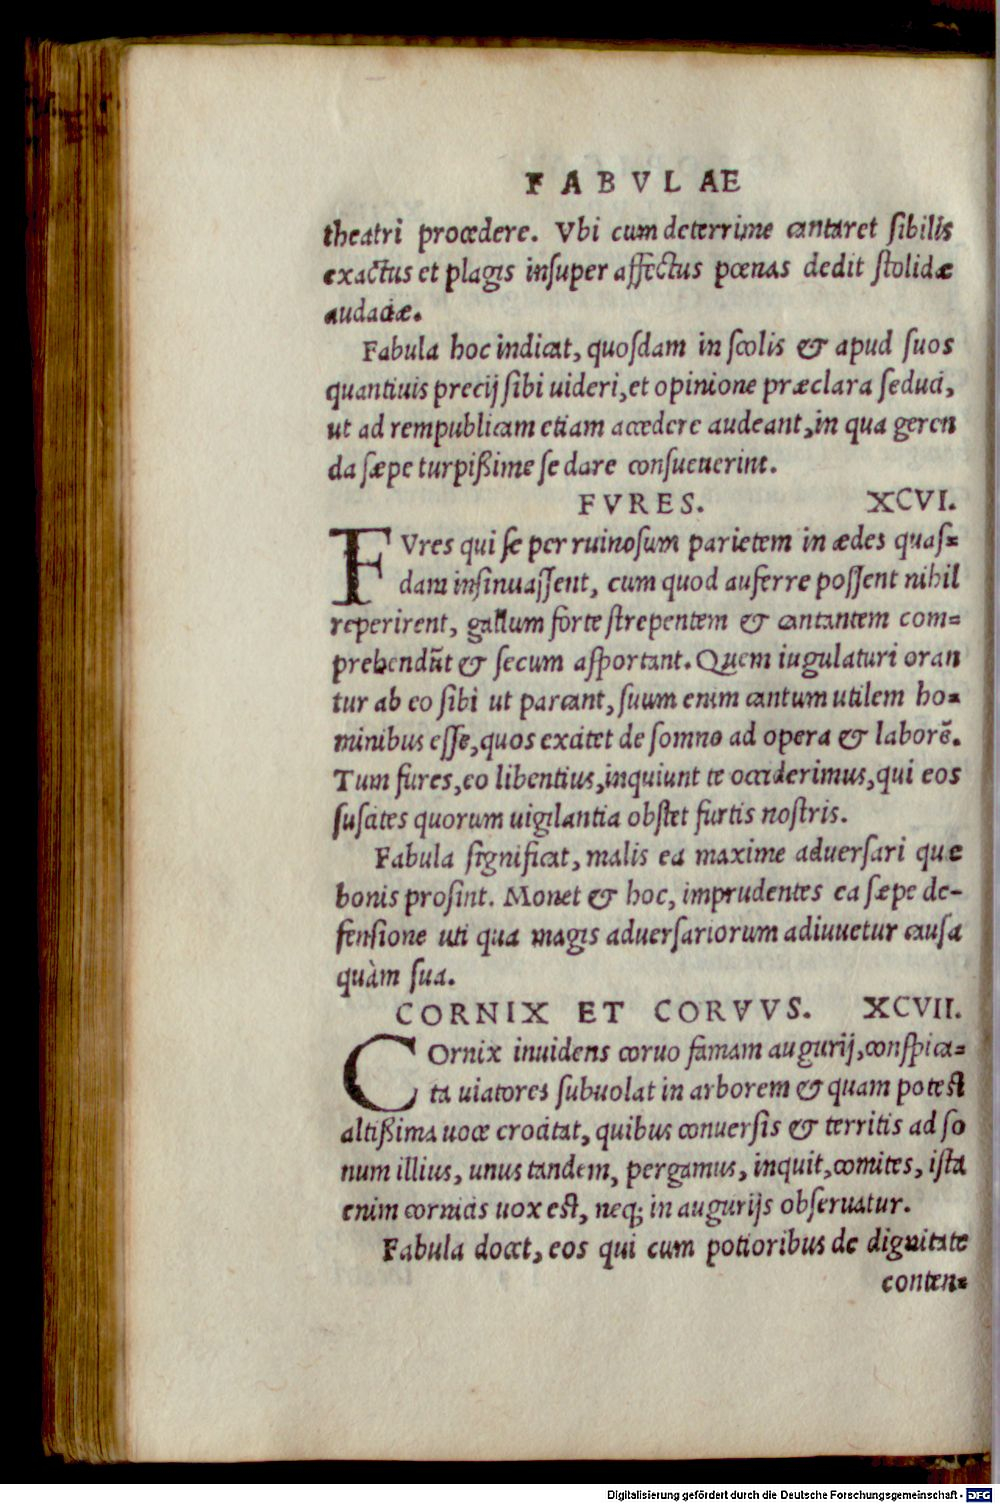 FABVLAE
theatri procedere. Vbi cum deterrime cantaret sibilis
exactus et plagis insuper affectus pœnas dedit stolidæ
audaciæ.
Fabula hoc indicat, quosdam in scolis & apud suos
quantiuis precij sibi uideri, et opinione præclara seduci,
ut ad rempublicam etiam accedere audeant, in qua geren
da sæpe turpißime se dare consueuerint.
FVRES. XCVI.
FVres qui se per ruinosum parietem in ædes quas=
dam insinuassent, cum quod auferre possent nihil
reperirent, gallum forte strepentem & cantantem com=
prehendūt & secum asportant. Quem iugulaturi oran
tur ab eo sibi ut parcant, suum enim cantum utilem ho=
minibus esse, quos excitet de somno ad opera & laborē.
Tum fures, eo libentius, inquiunt te occiderimus, qui eos
suscites quorum uigilantia obstet furtis nostris.
Fabula significat, malis ea maxime adversari que
bonis prosint. Monet & hoc, imprudentes ea sæpe de-
fensione uti qua magis adversariorum adiuvetur causa
quàm sua.
CORNIX ET CORVVS. XCVII.
COrnix inuidens coruo famam augurij, conspica=
ta uiatores subuolat in arborem & quam potest
altißima uoce crocitat, quibus conuersis & territis ad so
num illius, unus tandem, pergamus, inquit, comites, ista
enim cornicis uox est, neq; in augurijs obseruatur.
Fabula docet, eos qui cum potioribus de dignitate
conten=
Digitalisierung gefördert durch die Deutsche Forschungsgemeinschaft - DFG